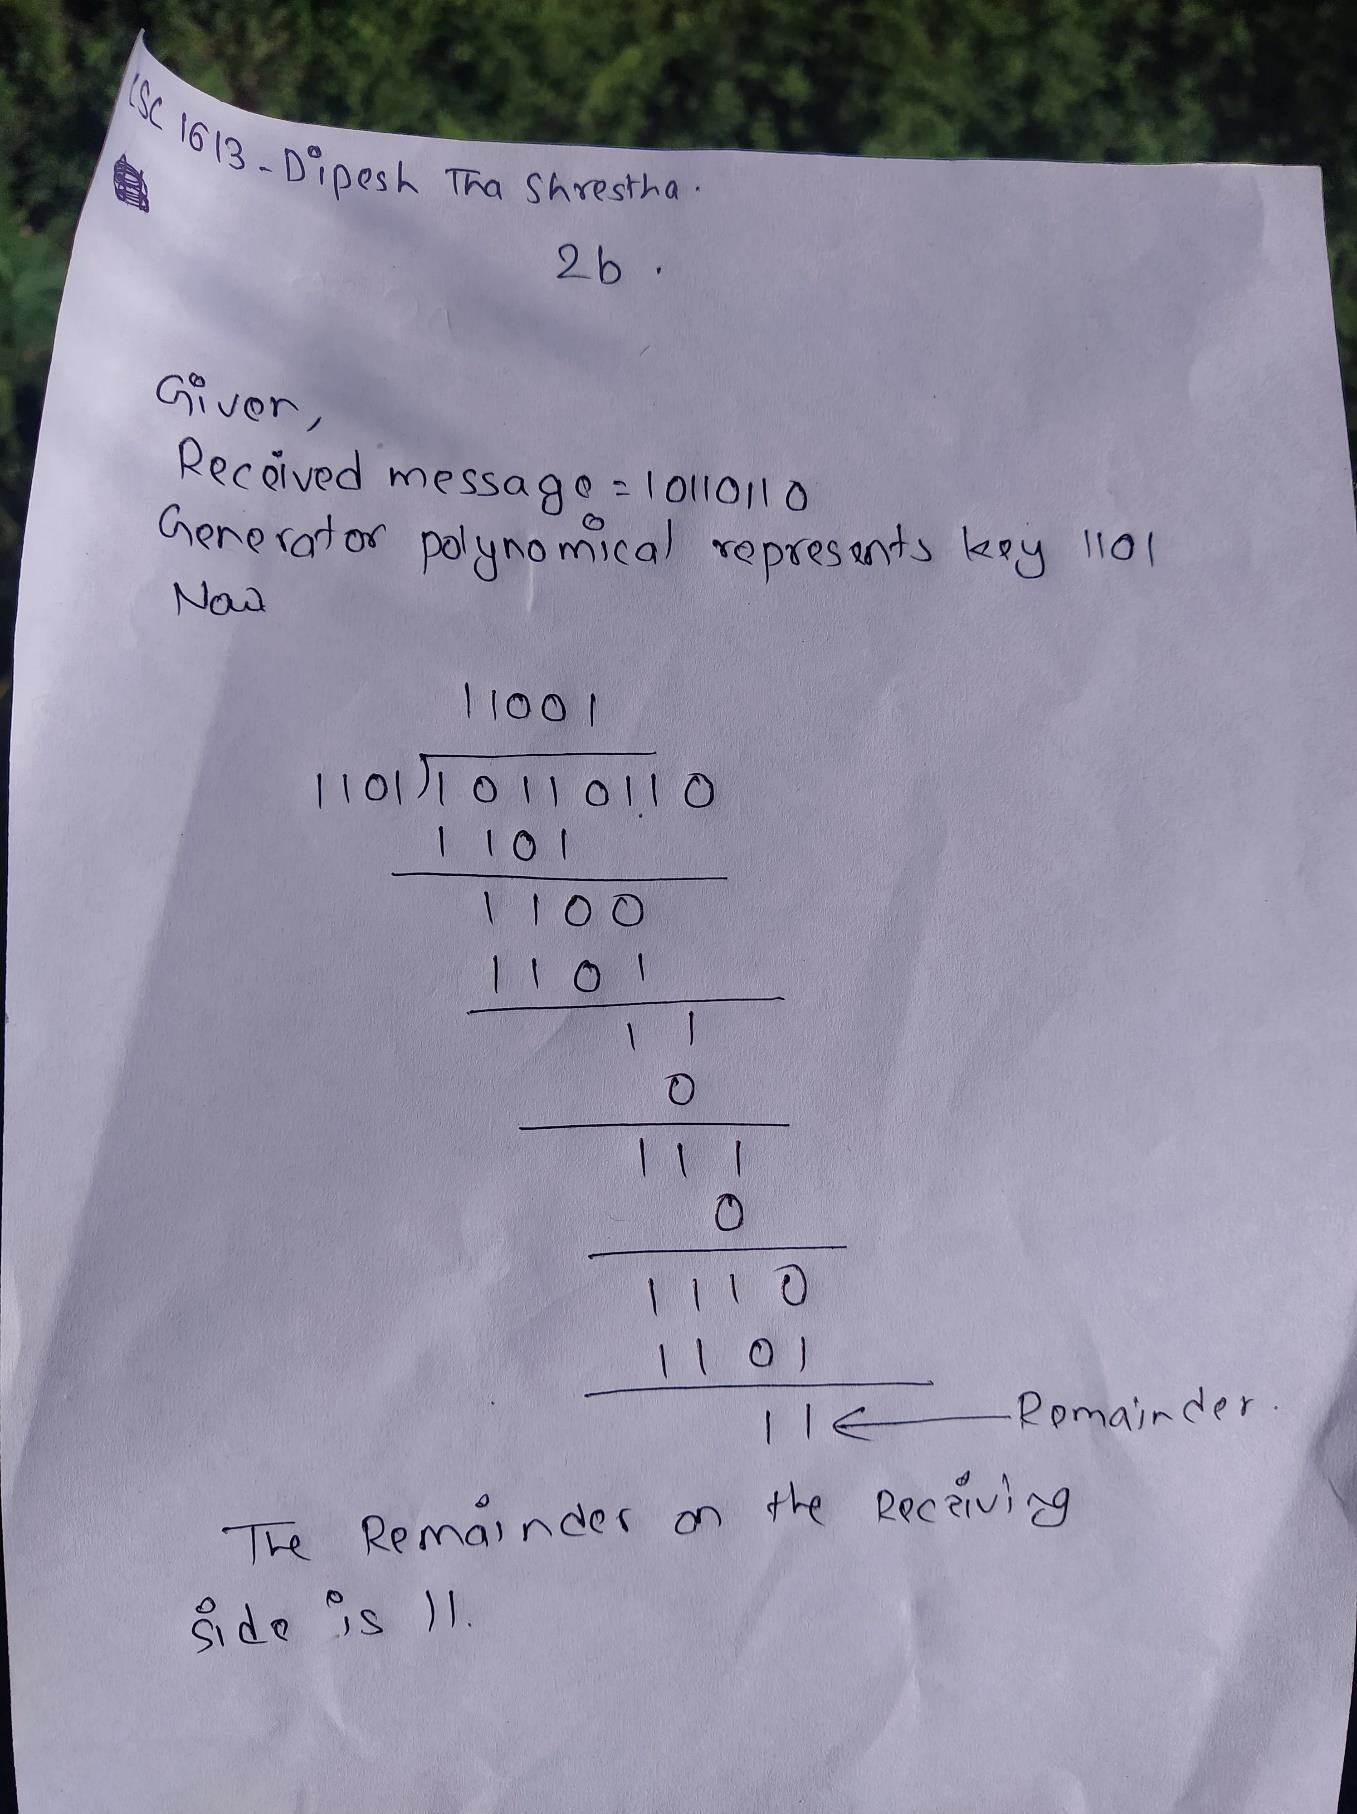 CSC 1613 - Dipesh Tha Shrestha.
2b.
Given,
Received message = 10110110
Generator polynomical represents key 1101
Now
11001
1101)10110110
1101
1100
1101
11
0
111
0
1110
1101
11 ← Remainder.
The Remainder on the Receiving
side is 11.